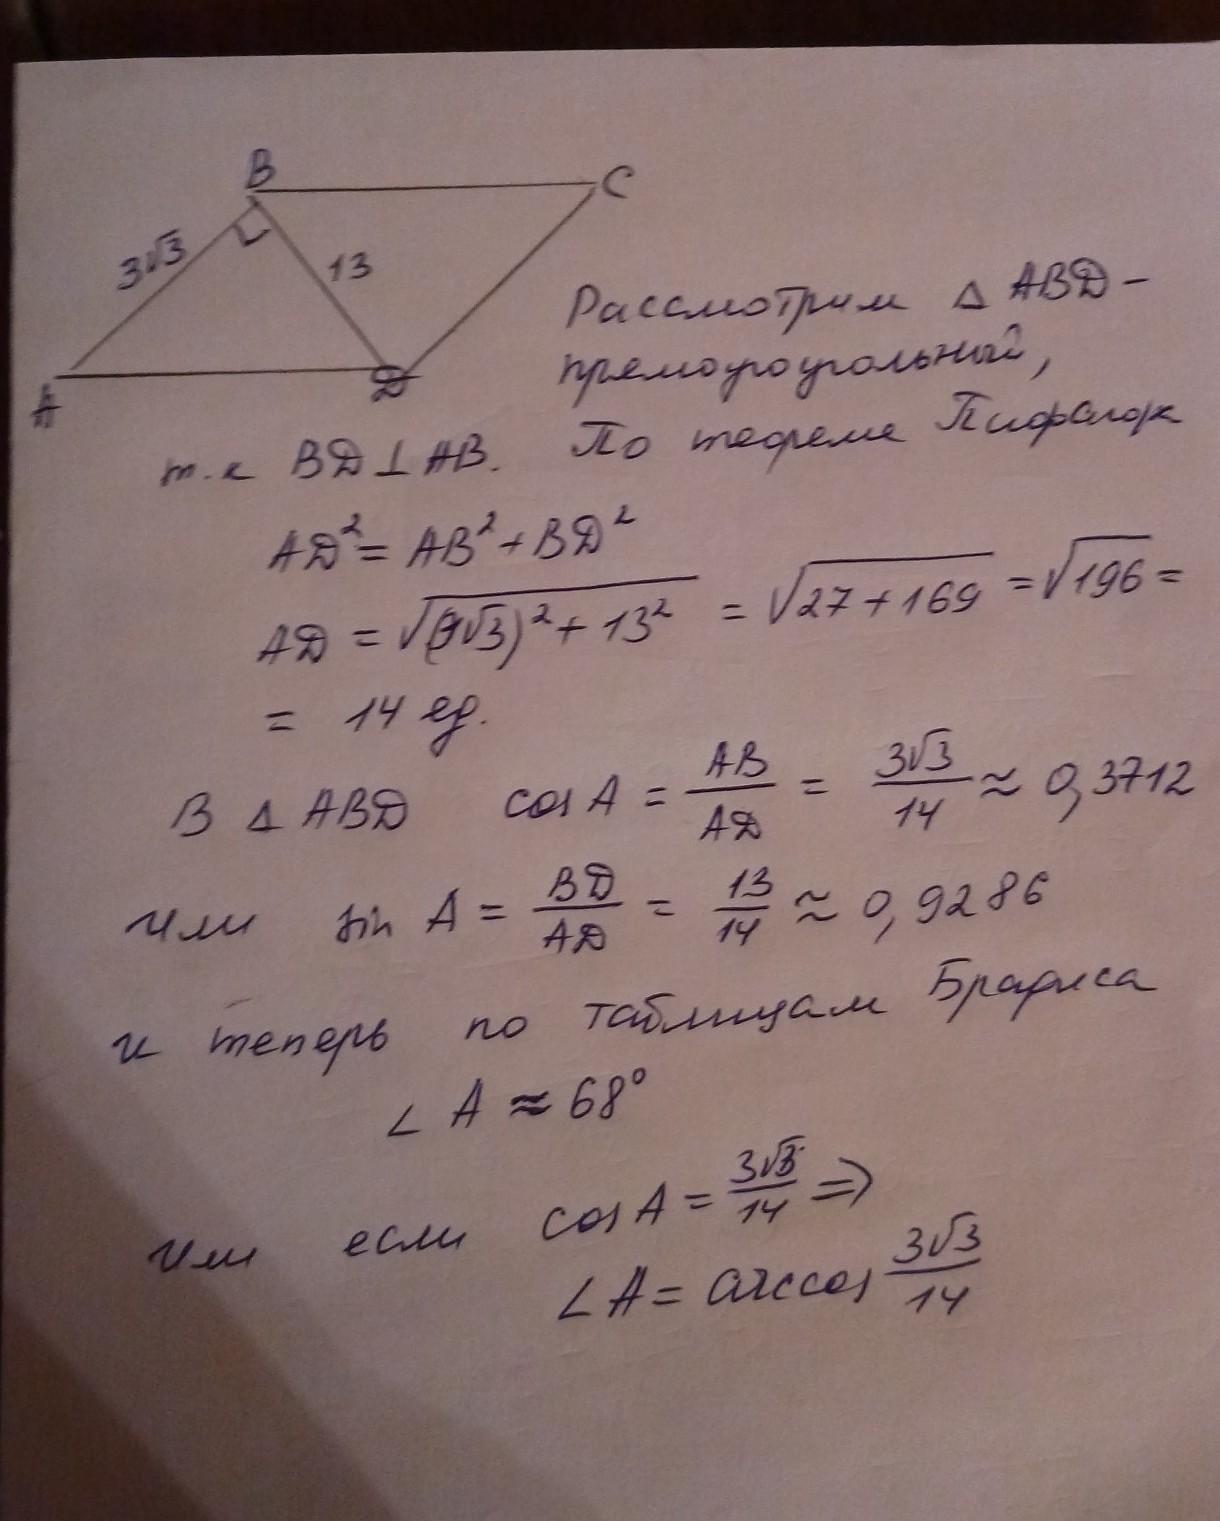 B
C
3√3
13
A
D
Рассмотрим Δ ABD –
прямоугоугольный,
т.к BD ⊥ AB. По теореме Пифагора
AD² = AB² + BD²
AD = √(3√3)² + 13² = √27 + 169 = √196 =
= 14 ед.
В Δ ABD cos A = AB/AD = 3√3/14 ≈ 0,3712
или sin A = BD/AD = 13/14 ≈ 0,9286
и теперь по таблицам Брадиса
∠ A ≈ 68°
или если cos A = 3√3/14 ⇒
∠ A = arccos 3√3/14